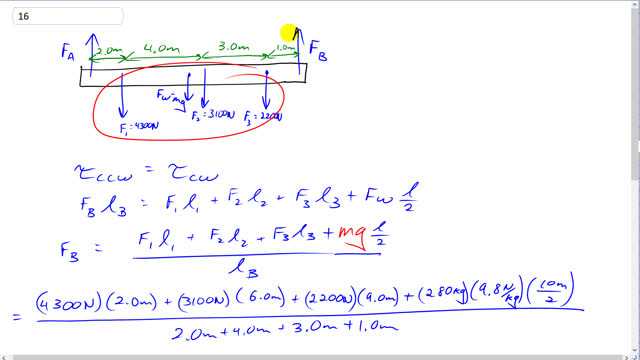 16
F_A 2.0m 4.0m 3.0m 1.0m F_B
F_w=mg
F_1=4300N F_2=3100N F_3=2200N
τ_ccw = τ_ccw
F_B l_B = F_1 l_1 + F_2 l_2 + F_3 l_3 + F_w l/2
F_B = (F_1 l_1 + F_2 l_2 + F_3 l_3 + mg l/2) / l_B
= ((4300N)(2.0m)+(3100N)(6.0m)+(2200N)(9.0m)+(280kg)(9.8N/kg)(10m/2)) / (2.0m+4.0m+3.0m+1.0m)